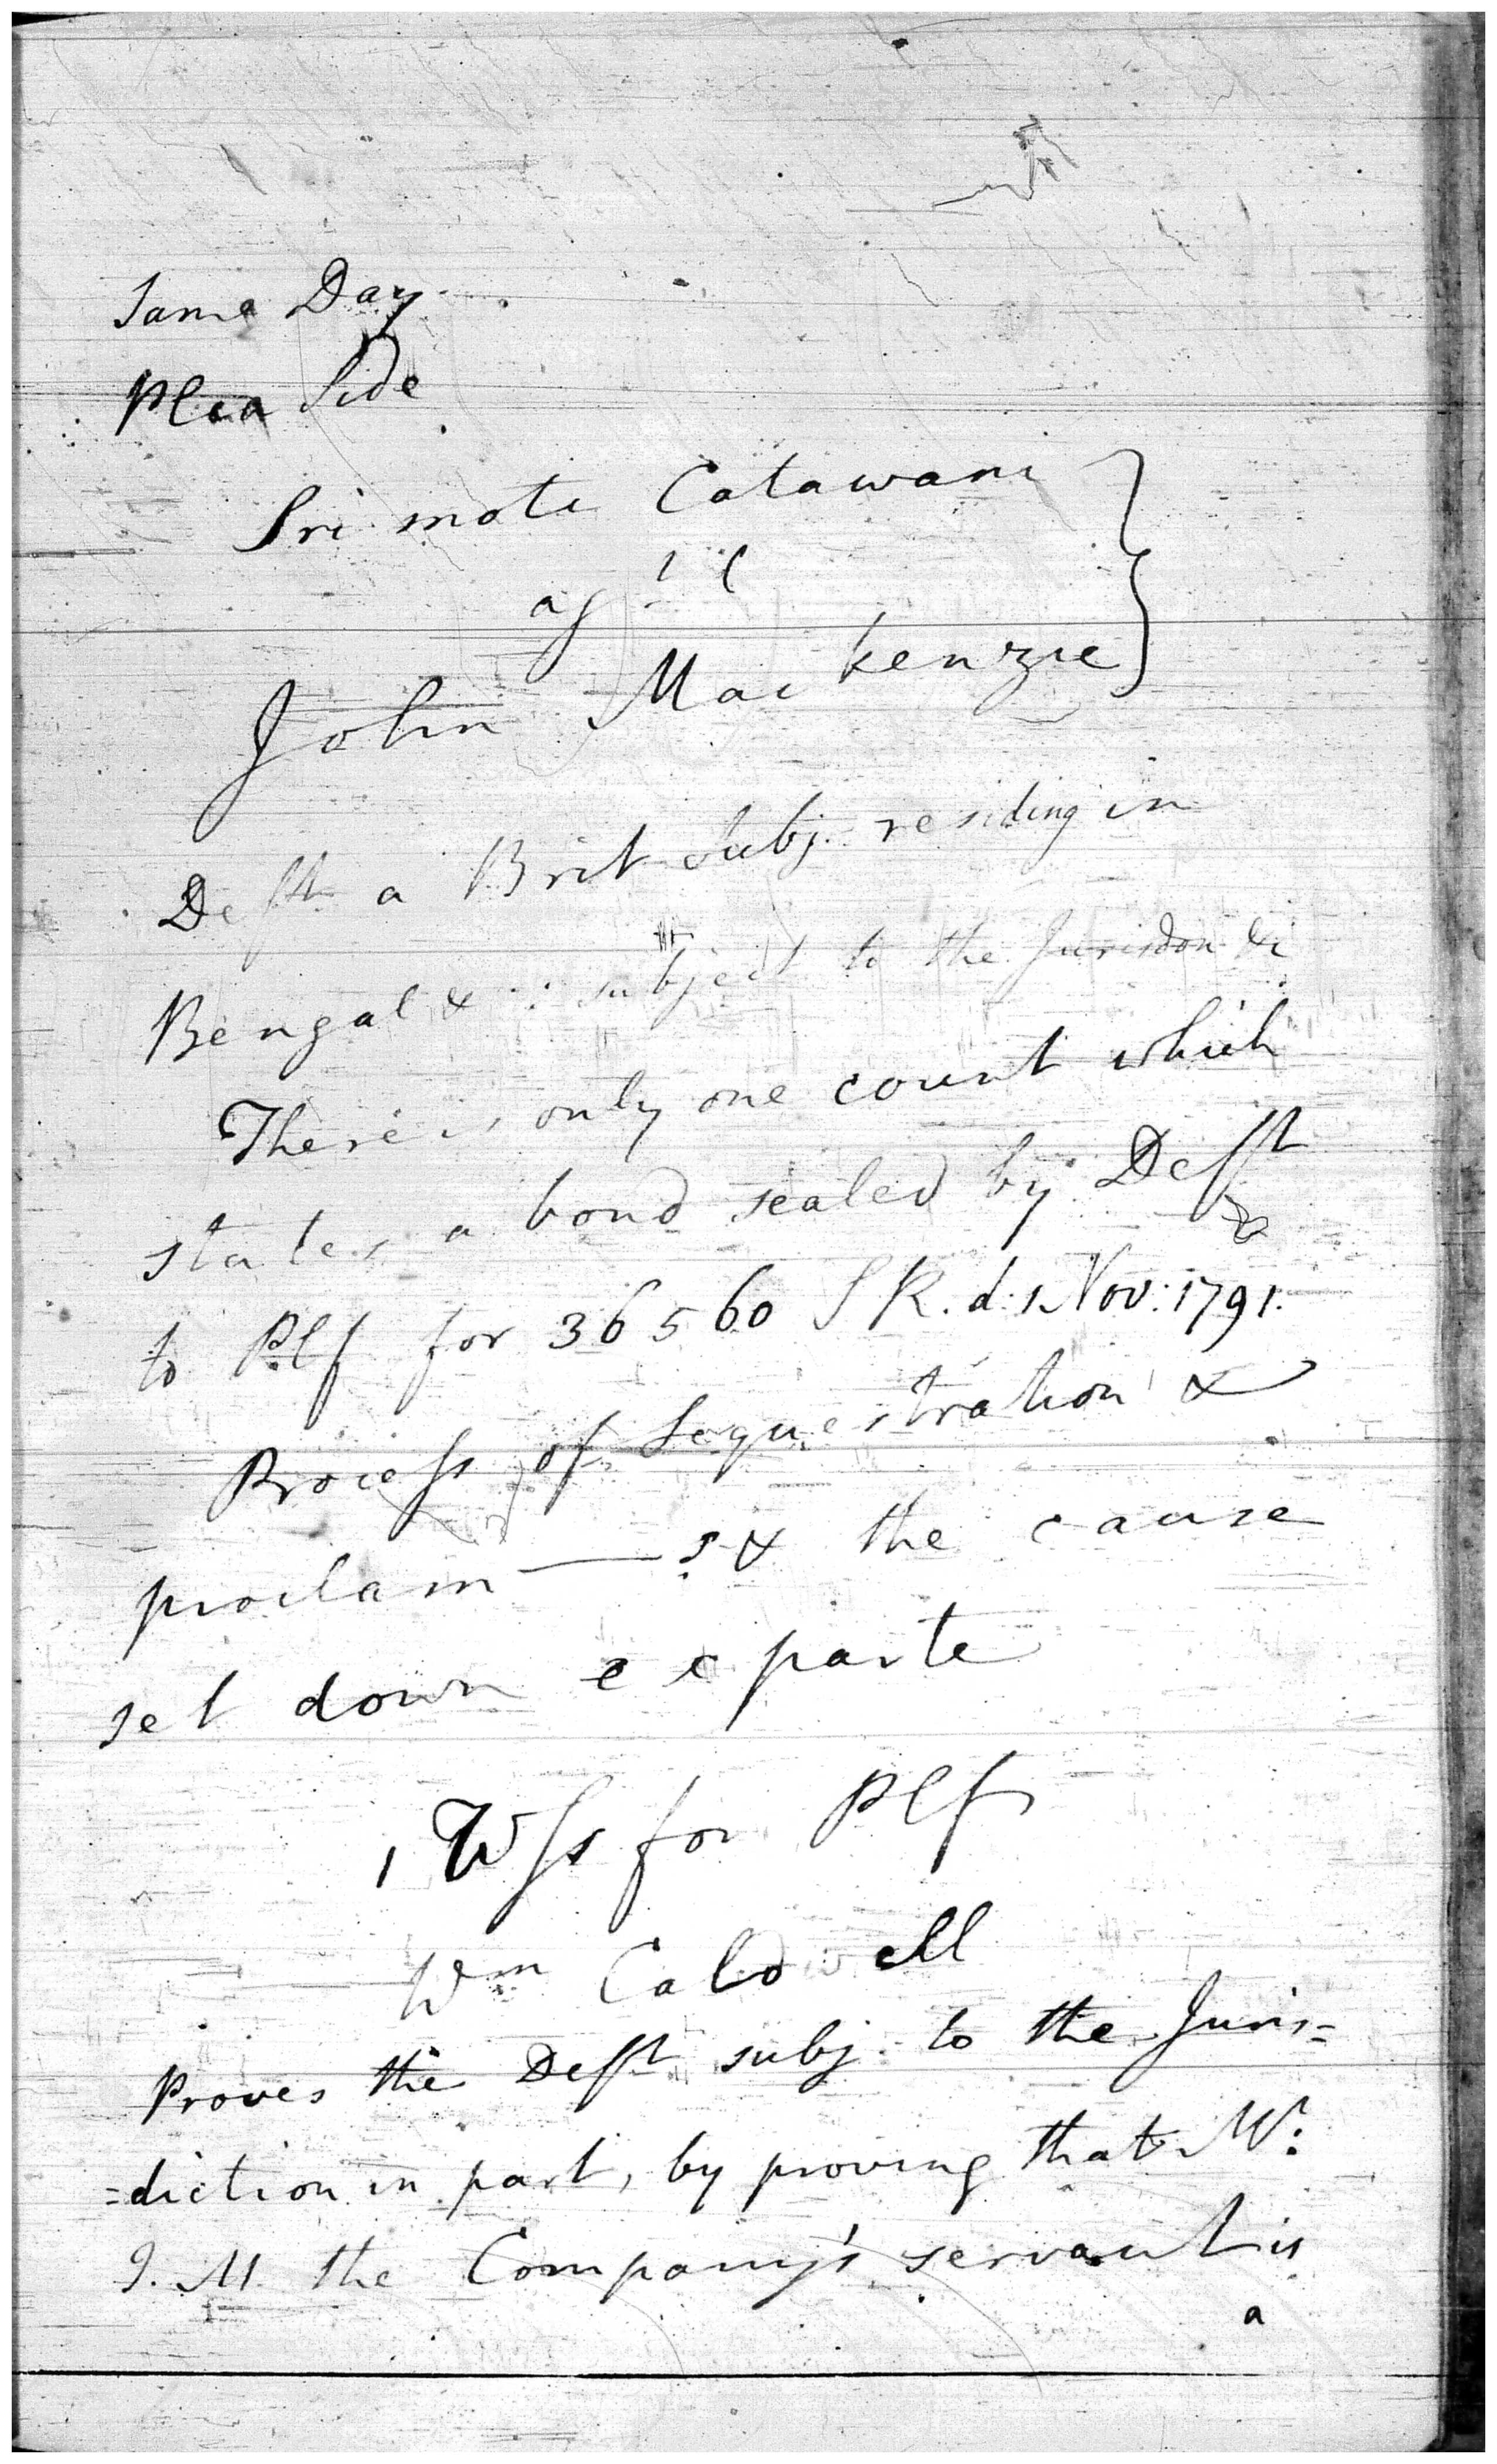 Same Day
Plea Side
Sri mote Catawani
agst
John Mackenzie
Deft a Brit Subj. residing in
Bengal & : subject to the Jurisdon &c
There is only one count which
states a bond sealed by Deft
to Plf for 36560 SR. d: 1 Nov: 1791.
Process of Sequestration &
proclam——s & the cause
set down ex parte
1 Wss for Plf
Wm Caldwell
Proves the Deft subj. to the Juris=
=diction in part, by proving that Mr:
J. M. the Company's servant is
a